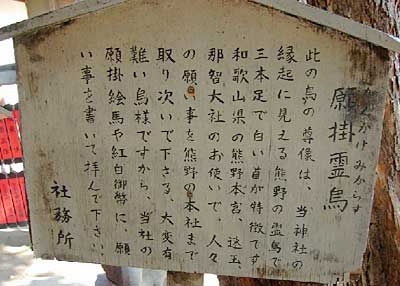 願掛霊烏
がんかけみからす
此の烏の尊像は、当神社の
縁起に見える熊野の霊烏で
三本足で白い首が特徴です
和歌山県の熊野本宮、速玉、
那智大社のお使いで、人々
の願い事を熊野の本社まで
取り次いで下さる、大変有
難い烏様ですから、当社の
願掛絵馬や紅白御幣に、願
い事を書いて拝んで下さい、
社務所